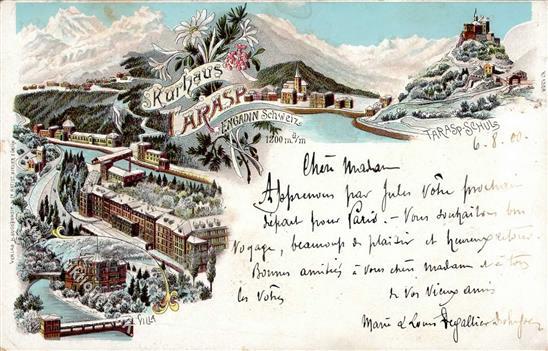 Kurhaus
TARASP
ENGADIN Schweiz
1200 m/m
TARASP-SCHULS
6.8.00
Chère Madame
Apprenons par Jules Votre prochain
départ pour Paris. – Vous souhaitons bon
Voyage, beaucoup de plaisir et heureux retour.
Bonnes amitiés à Vous chère Madame et à tous
les Vôtres
de Vos Vieux amis
Marie & Louis Degallier
VILLA